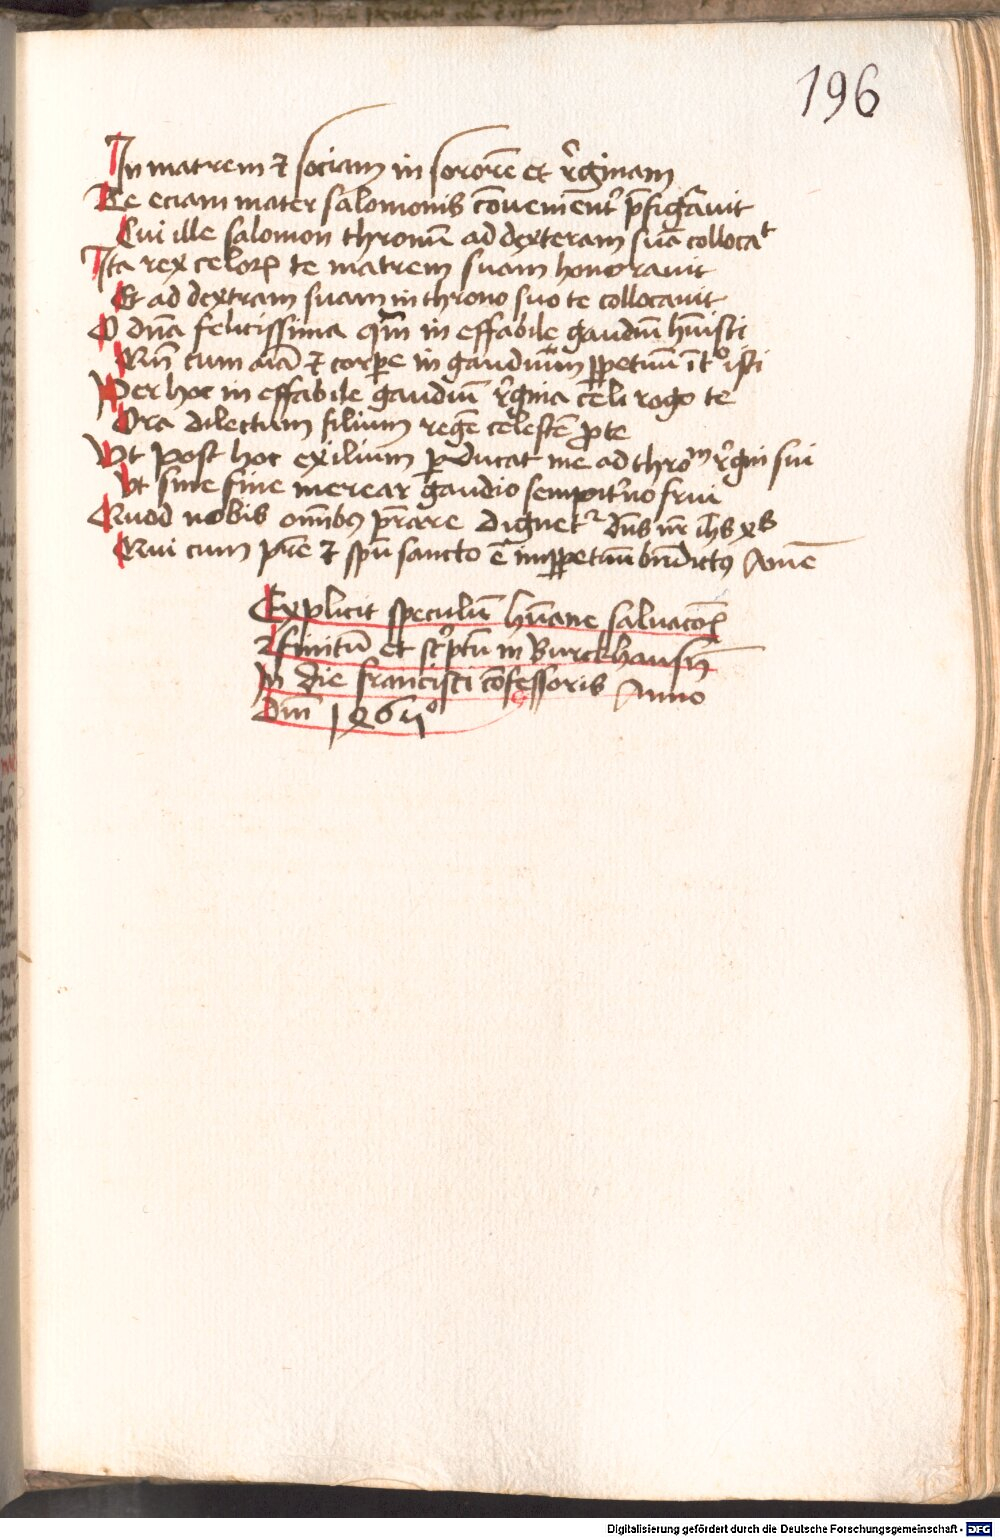 196
In matrem et sociam in sororē et rͥginam
Te eciam mater salomonis cōuenient̉ p̄figͣuit
Cui ille salomon thronū ad dexteram suā collocaᵗ
Ita rex celoꝝ te matrem suam honorauit
Et ad dextram suam in throno suo te collocauit
O dn̄a felicissima qͣm in effabile gaudiū hūisti
Qn̄ cum aīa et corꝑe in gaudium ꝑpetuū īt°isti
Per hoc in effabile gaudiū rͥgina celi rogo te
Ora dilectum filium regē celestē ꝓ te
Vt post hoc exilium ꝑducat me ad thrōm rͥgni sui
Vt sine fine merear gaudio sempit̉no frui
Quod nobis om̄ibꝯ p̄rare dignetᷣ dn̄s nr̄ ih̄s xp̄s
Qui cum pr̄e et spū sancto ē imꝑpetuū bn̄dictꝯ Amē
Explicit speculū hūane saluacōꝭ
ꝯfinitū et scͥptū in Burckhausn̄
In die francisci cōfessoris Anno
Dm̄
Digitalisierung gefördert durch die Deutsche Forschungsgemeinschaft - DFG